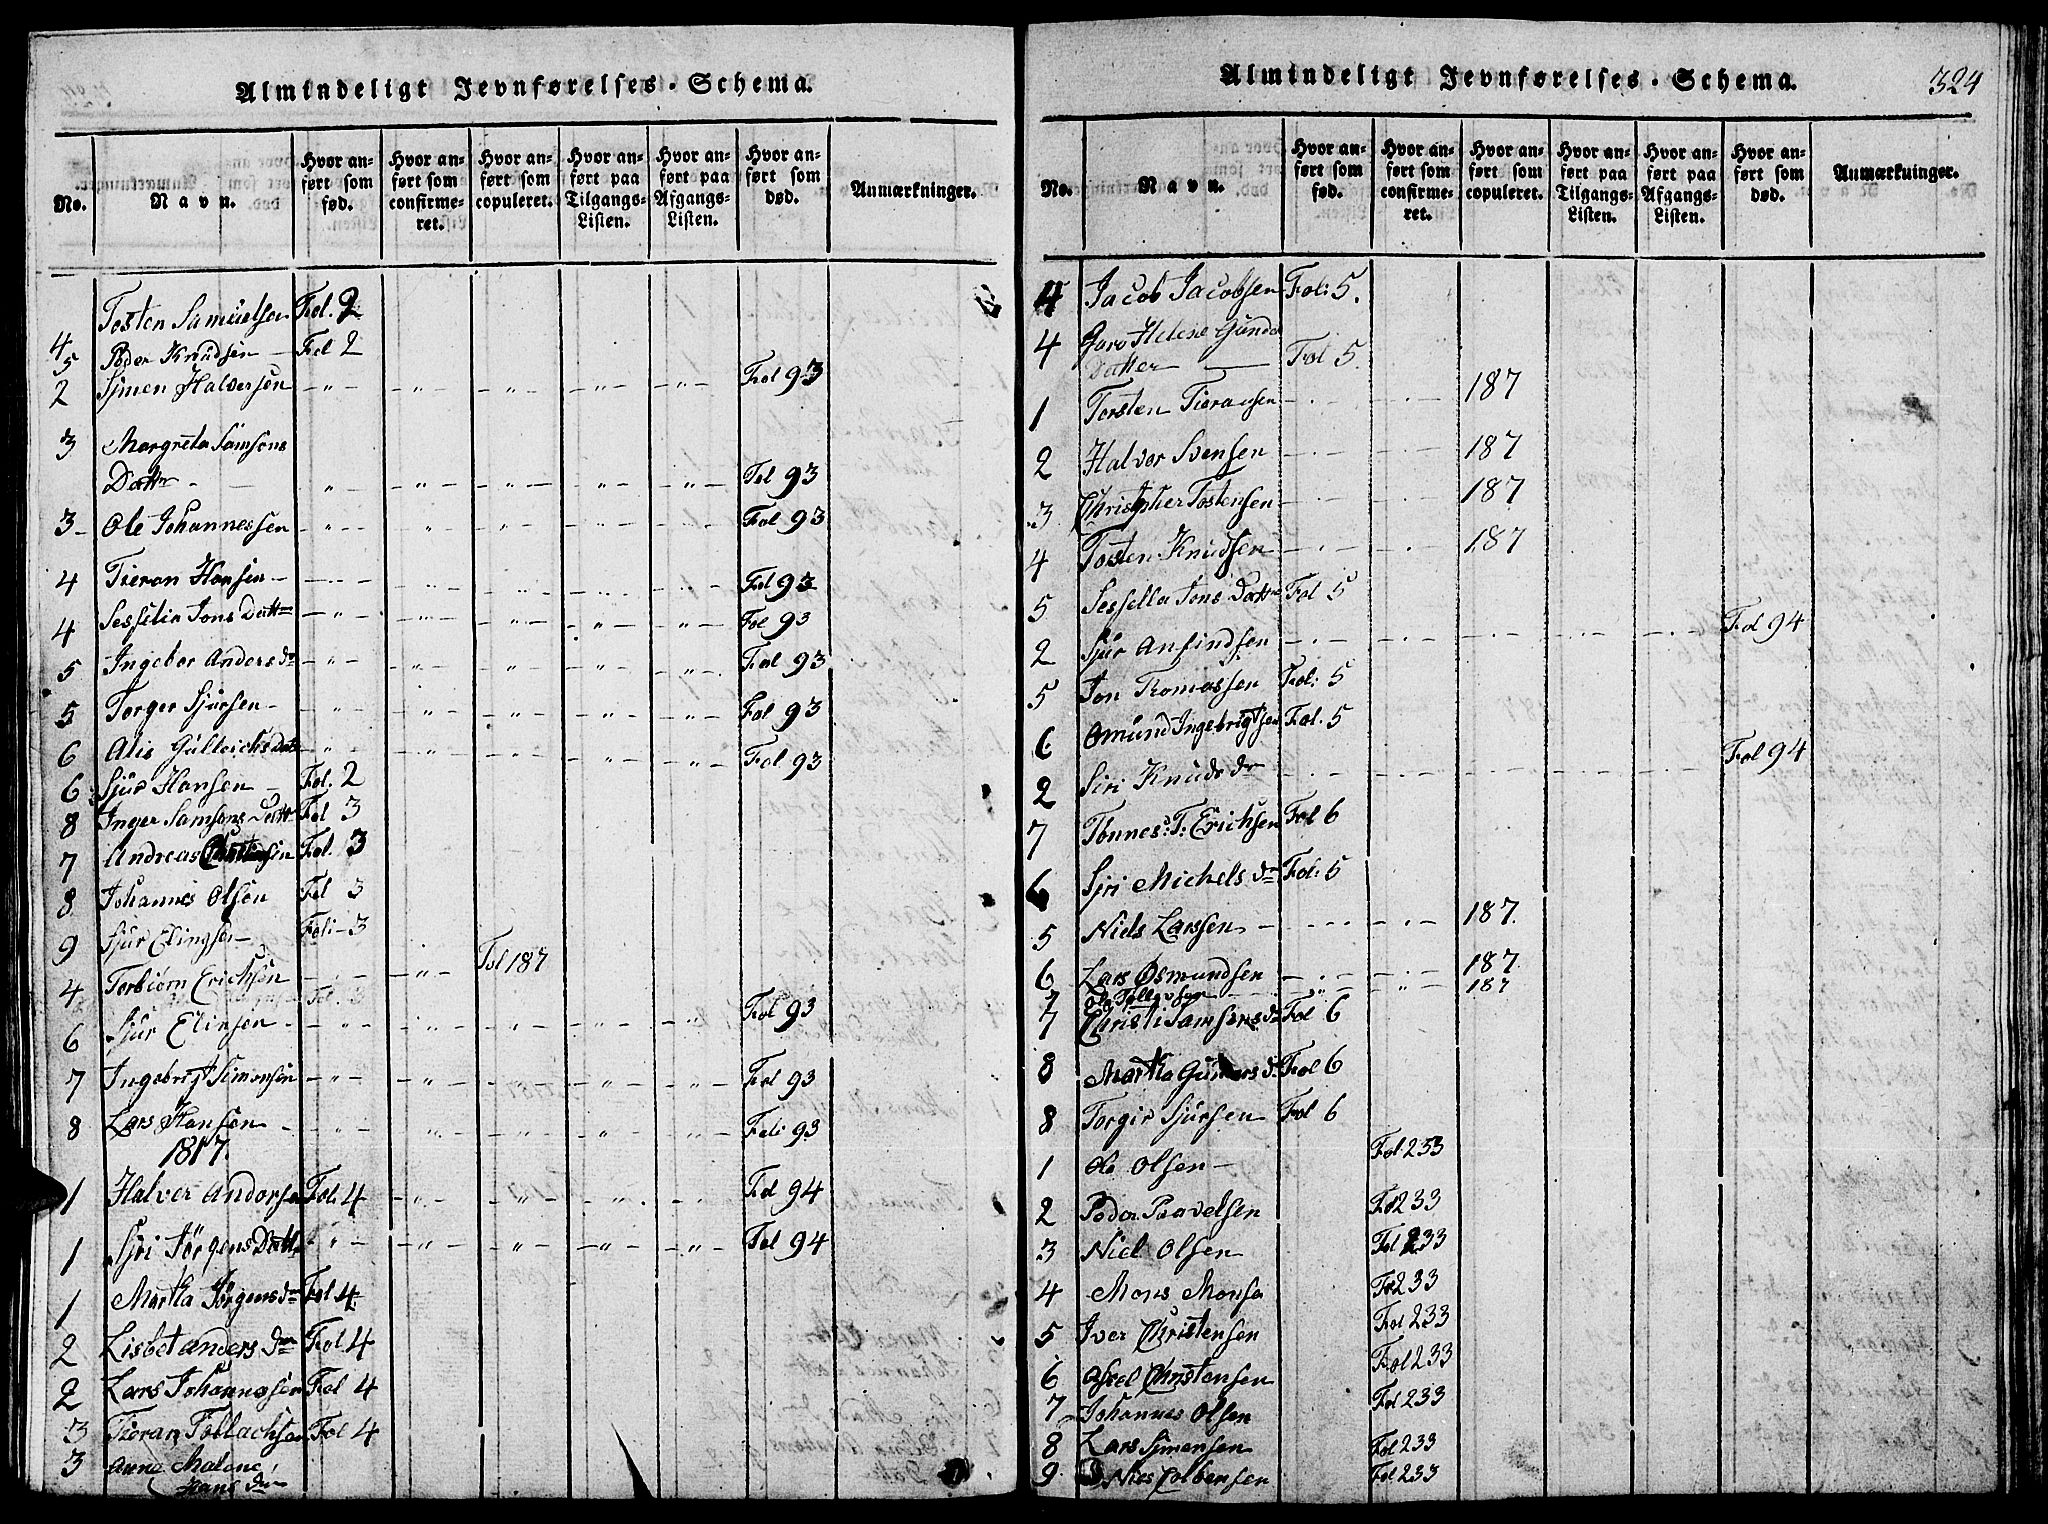 Almindeligt Jevnførelses-Schema.
No. Navn. Hvor anført som fød. Hvor anført som confirmeret. Hvor anført som copuleret. Hvor anført paa Tilgangs-Listen. Hvor anført paa Afgangs-Listen. Hvor anført som død. Anmærkninger.
4 Tosten Samuelsen Fol. 2
5 Peder Knudsen – Fol 2
2 Simen Halversen Fol 93
3 Margreta Samsons
Datter Fol 93
3 Ole Johannessen Fol 93
4 Tieran Hansen Fol 93
4 Sessilia Jons Datter Fol 93
5 Ingebor Anders dr Fol 93
5 Torger Sjursen Fol 93
6 Alis Gulleichs Datr Fol 93
6 Sjur Hansen Fol. 2
8 Inger Samsons Dattr Fol 3
7 Andreas Fol. 3
8 Johannes Olsen Fol 3
9 Sjur Elingsen Fol: 3
4 Torbiørn Erichsen Fol 187
6 Sjur Elinsen Fol 93
7 Ingebrigt Simonsen Fol 93
8 Lars Hansen Fol: 93
1817.
1 Halver Andersen Fol: 4 Fol 94
1 Sjri Jørgens Dattr Fol 94
1 Martha Jørgens dr Fol 4
2 Lisbet anders dr Fol 4
2 Lars Johannesen Fol 4
3 Tieran Tollachsen Fol 4
3 Anne Malene
Hans dr
Almindeligt Jevnførelses-Schema. 324
No. Navn. Hvor anført som fød. Hvor anført som confirmeret. Hvor anført som copuleret. Hvor anført paa Tilgangs-Listen. Hvor anført paa Afgangs-Listen. Hvor anført som død. Anmærkninger.
4 Jacob Jacobsen Fol: 5.
4 Helene Gunder
Datter Fol 5.
1 Torsten Tieransen 187
2 Halvor Svensen 187
3 Christopher Tostensen 187
4 Tosten Knudsen 187
5 Sessella Jons Datter Fol 5
2 Sjur Anfindsen Fol 94
5 Jon Tomassen Fol: 5
6 Omund Ingebrigtsen Fol. 5
2 Siri Knuds dr Fol 94
7 Tønnes T: Erichsen Fol 6
6 Sjri Michels dr Fol: 5
5 Niels Larssen 187.
6 Lars Osmundsen 187
7 Ole 187
7 Christi Samsons dr Fol 6
8 Martha Gunders dr Fol 6
8 Torgir Sjursen Fol 6
1 Ole Olsen Fol: 233
2 Peder Paavelsen Fol 233
3 Niel Olsen Fol 233
4 Mons Monsen Fol 233
5 Iver Christensen Fol 233
6 Christensen Fol 233
7 Johannes Olsen Fol 233
8 Lars Simensen Fol 233
9 Nies Colbensen Fol 233